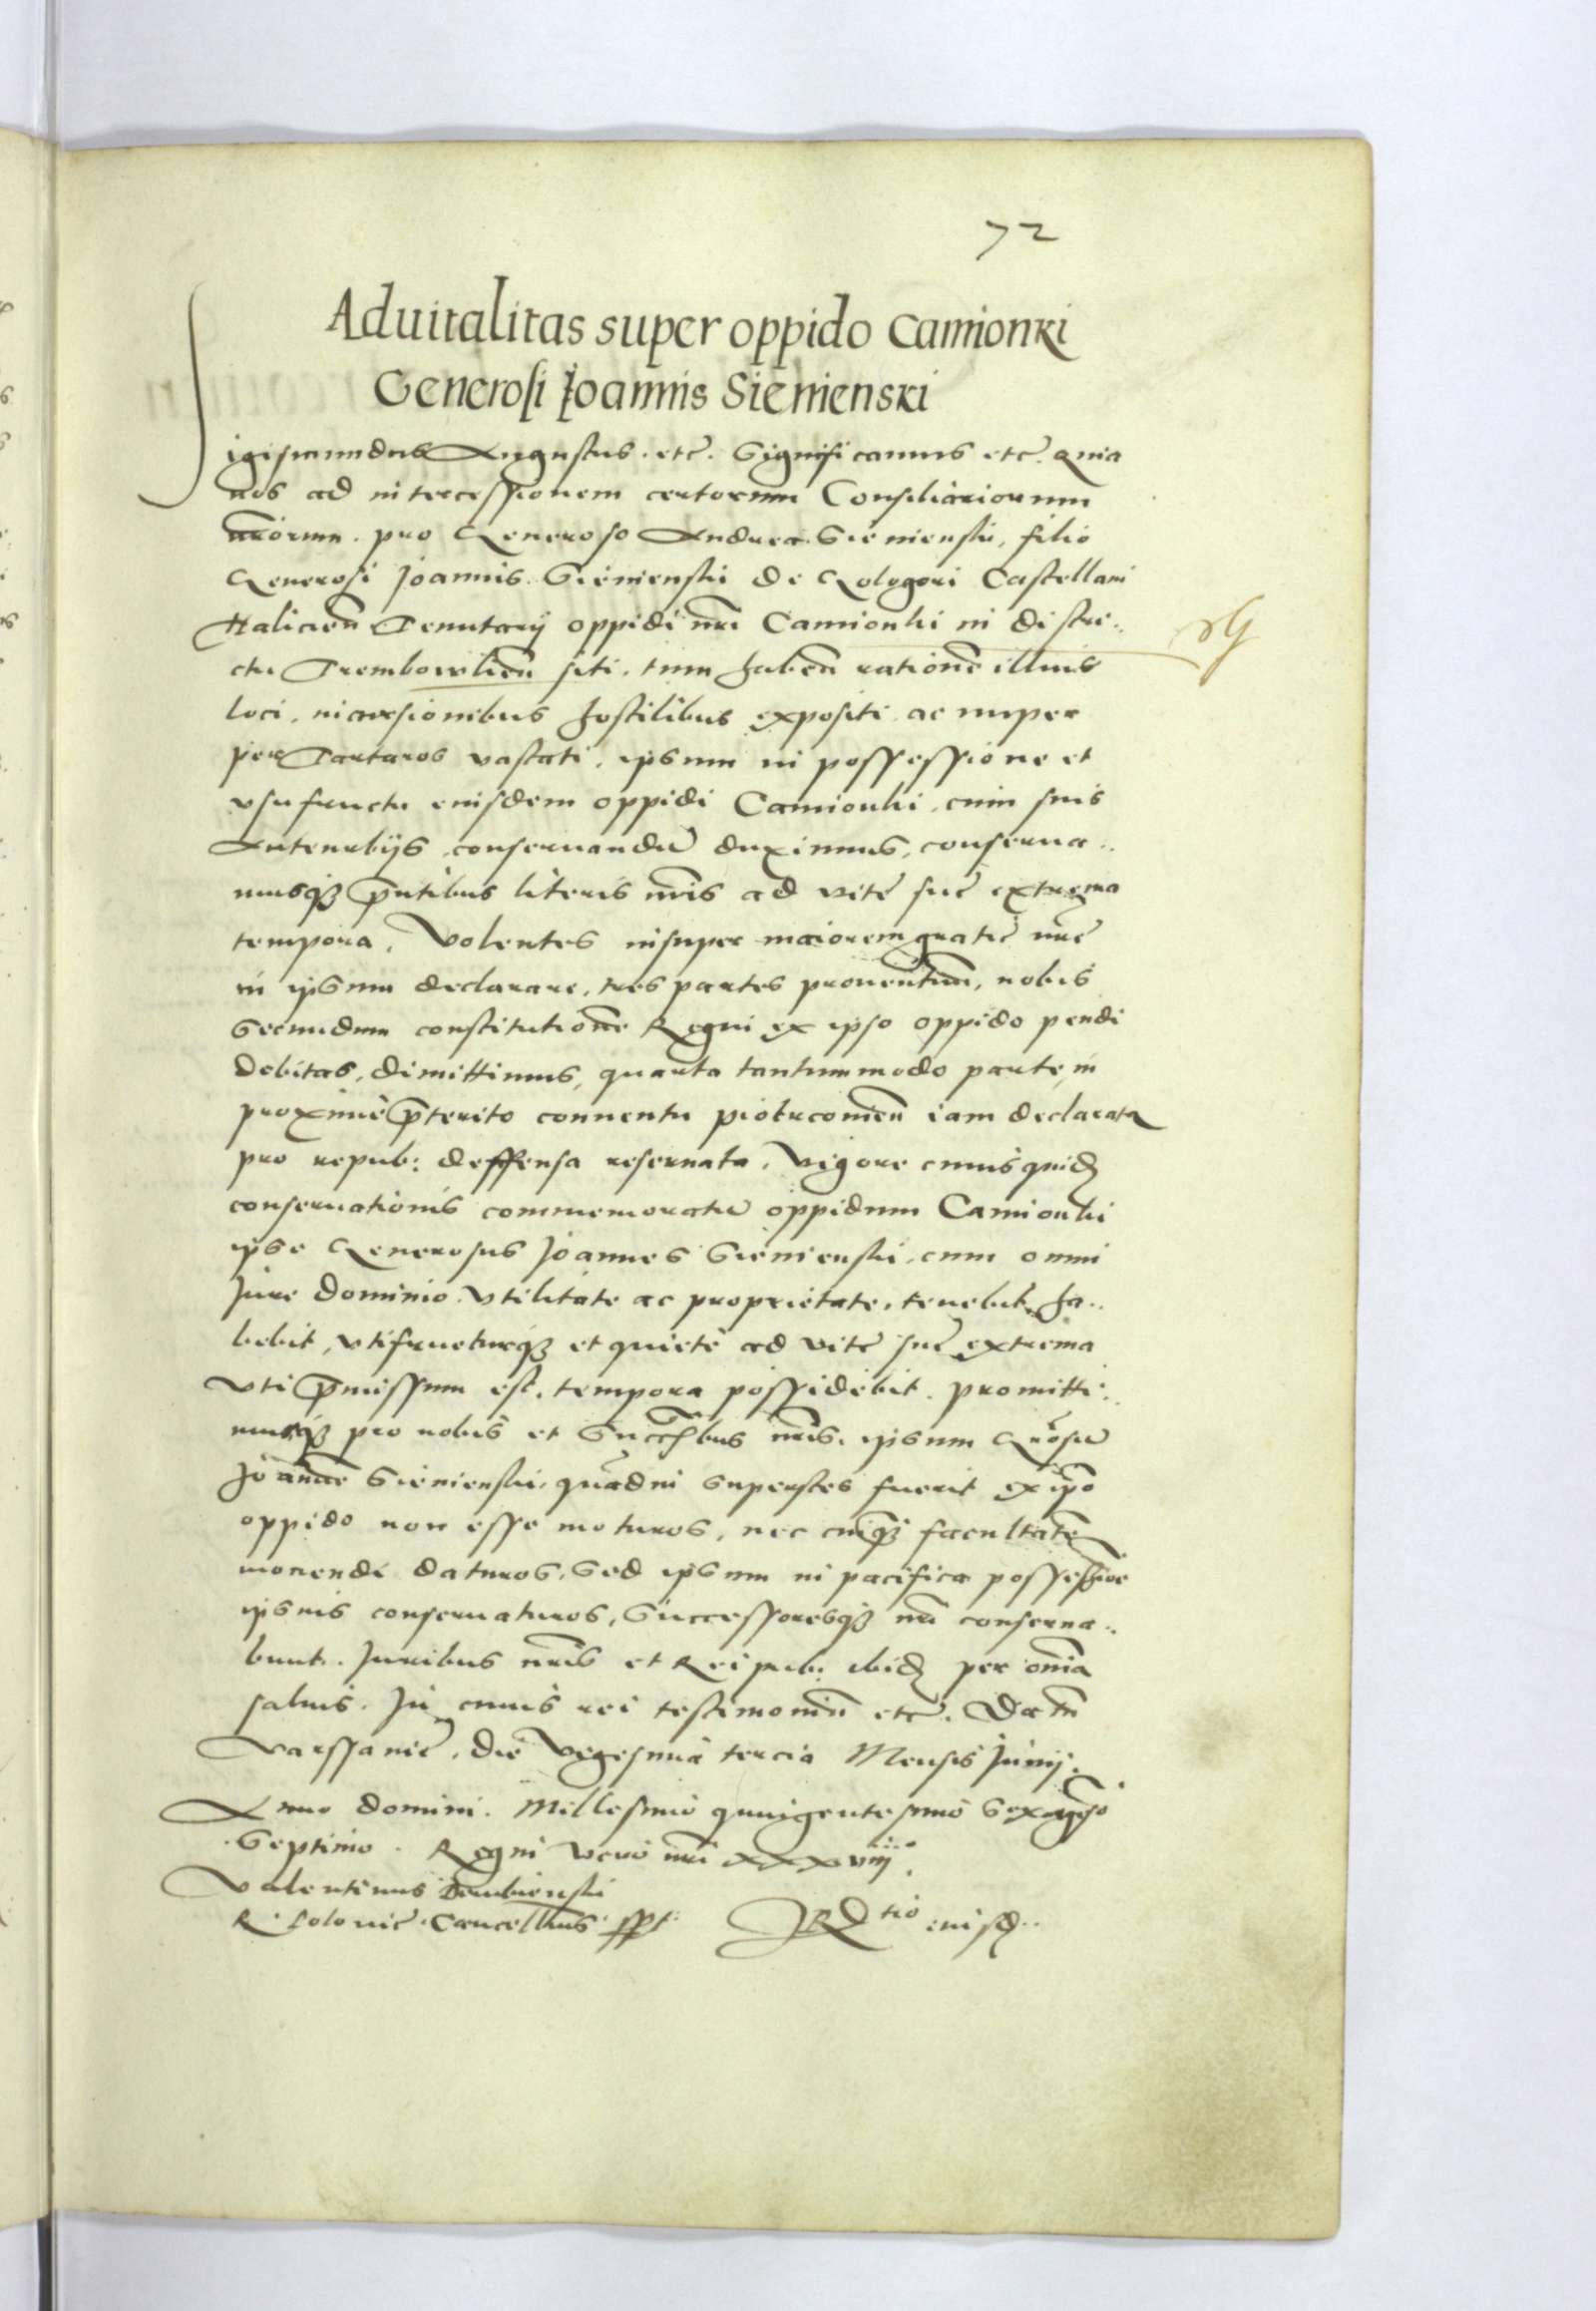 72
Aduitalitas super oppido Camionki
Generosi Joannis Sienienski
Sigismundus Augustus. etc. Significamus etc. Quia
nos ad intercessionem certorum Consiliariorum
nr̃orum. pro Generoso Andrea Sienienski, filio
Generosi Joannis Sienienski de Gologori Castellani
Halicien̄ Tenutarij oppidi nr̃i Camionki in distri..
ctu Trembowlien̄ siti. tum haben̄ rationē illius
loci, incursionibus hostilibus expositi ac nuper
per Tartaros vastati, ipsum in possessione et
vsufructu eiusdem oppidi Camionki, cum suis
Antenrbijs, conseruandū duximus, conserua..
musqꝫ p̄ntibus literis nr̃is ad vitę suę extrema
tempora. Volentes insuper maiorem gratię nr̃ę
in ipsum declarare, tres partes prouentuū, nobis
Secundum constitutionē Regni ex ipso oppido pendi
debitas, dimittimus, quarta tantummodo parte, in
proximè p̄terito conuentu piotrcouien̄ iam declarata
pro repub: deffensa reseruata. Vigore cuiusquid̄
conseruationis commemoratū oppidum Camionki
ipse Generosus Joannes Sienienski, cum omni
Jure dominio vtilitate ac proprietate, tenebit, ha..
bebit, vtifrueturqꝫ et quietè ad vitę suę extrema
vti p̄missum est, tempora possidebit. promitti..
musqꝫ pro nobis et Succ̄ribus nr̃is, ipsum Gn̄osū
Joannē Sienienski, quādiu Superstes fuerit ex ip̄o
oppido non esse moturos, nec cuiqꝫ facultatē
mouendi daturos, Sed ipsum in pacifica possessiōe
ipsius conseruaturos, Successoresqꝫ nr̃i conserua..
bunt. Juribus nr̃is et Reipub: ibid̄ per om̄ia
saluis. In cuius rei testimoniū etc̄. Datū
Varssauię, die Vigesima tercia Mensis Junij.
Anno domini. Millesimo quingentesimo Sexagẽso
Septimo. Regni vero nr̃i xxxviij.
Valentinus Dembienski
R. Polonię Cancellr̃ius sspt. R̄tio eiusd̄..